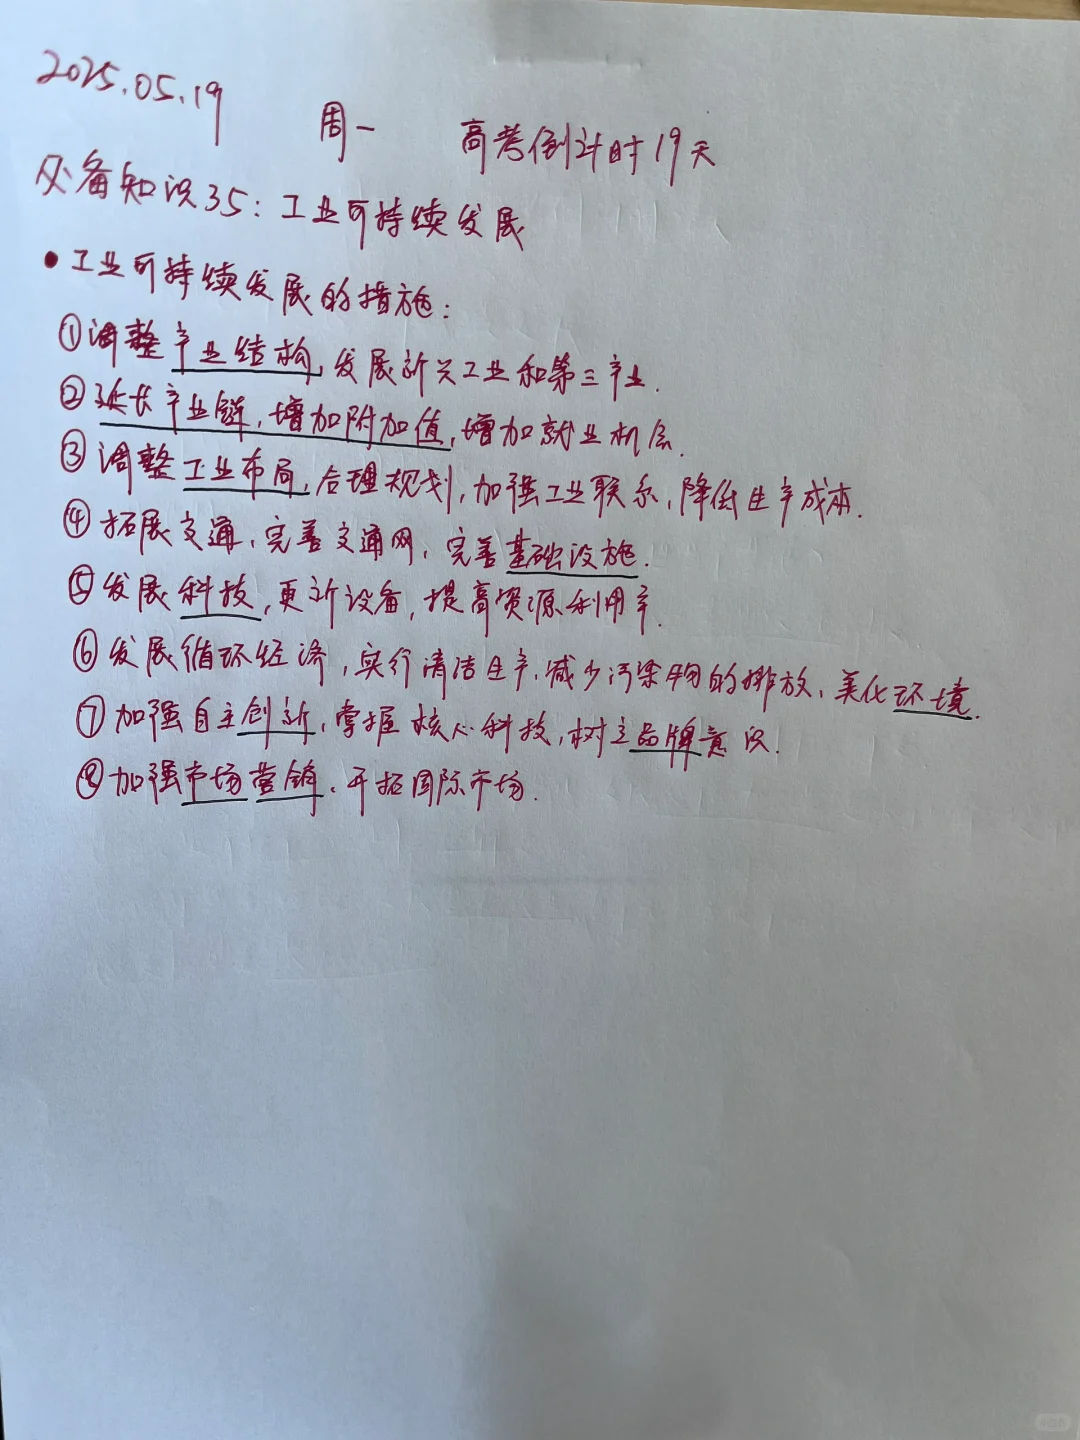 2025.05.19 周一 高考倒计时19天
必备知识35:工业可持续发展
• 工业可持续发展的措施:
①调整产业结构,发展新兴工业和第三产业.
②延长产业链,增加附加值,增加就业机会.
③调整工业布局,合理规划,加强工业联系,降低生产成本.
④拓展交通,完善交通网,完善基础设施.
⑤发展科技,更新设备,提高资源利用率.
⑥发展循环经济,实行清洁生产,减少污染物的排放,美化环境.
⑦加强自主创新,掌握核心科技,树立品牌意识.
⑧加强市场营销,开拓国际市场.
小红书